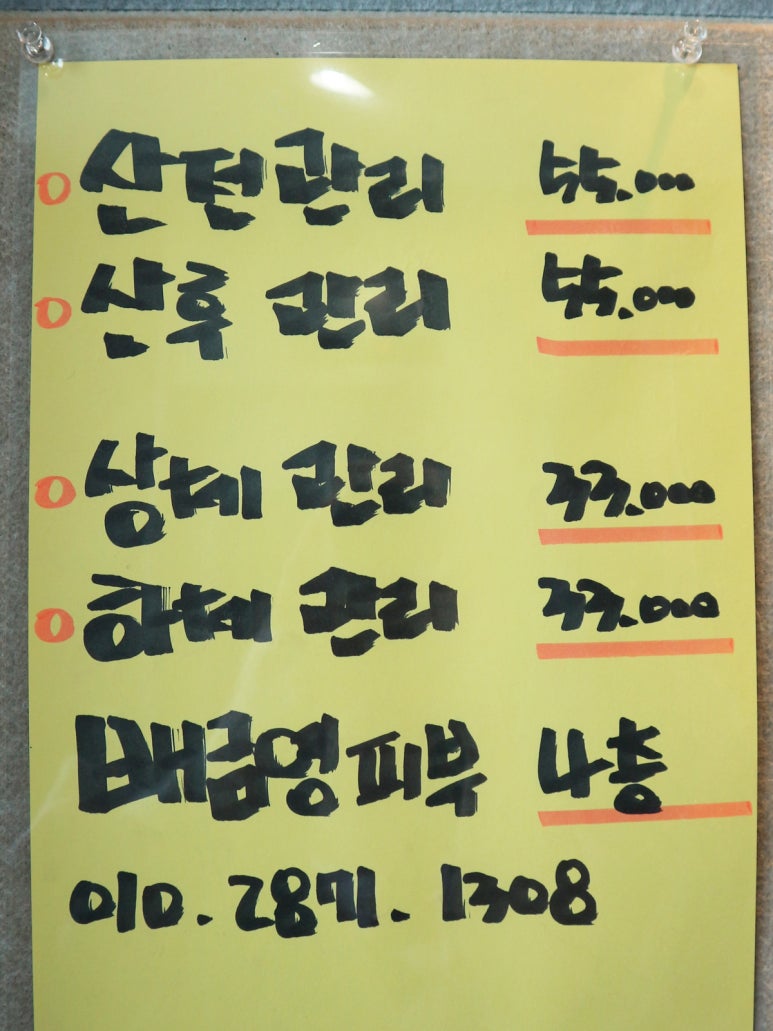 o 산전관리 55.000
o 산후 관리 55.000
o 상체 관리 33.000
o 하체 관리 33.000
배금영피부 4층
010.2871.1308